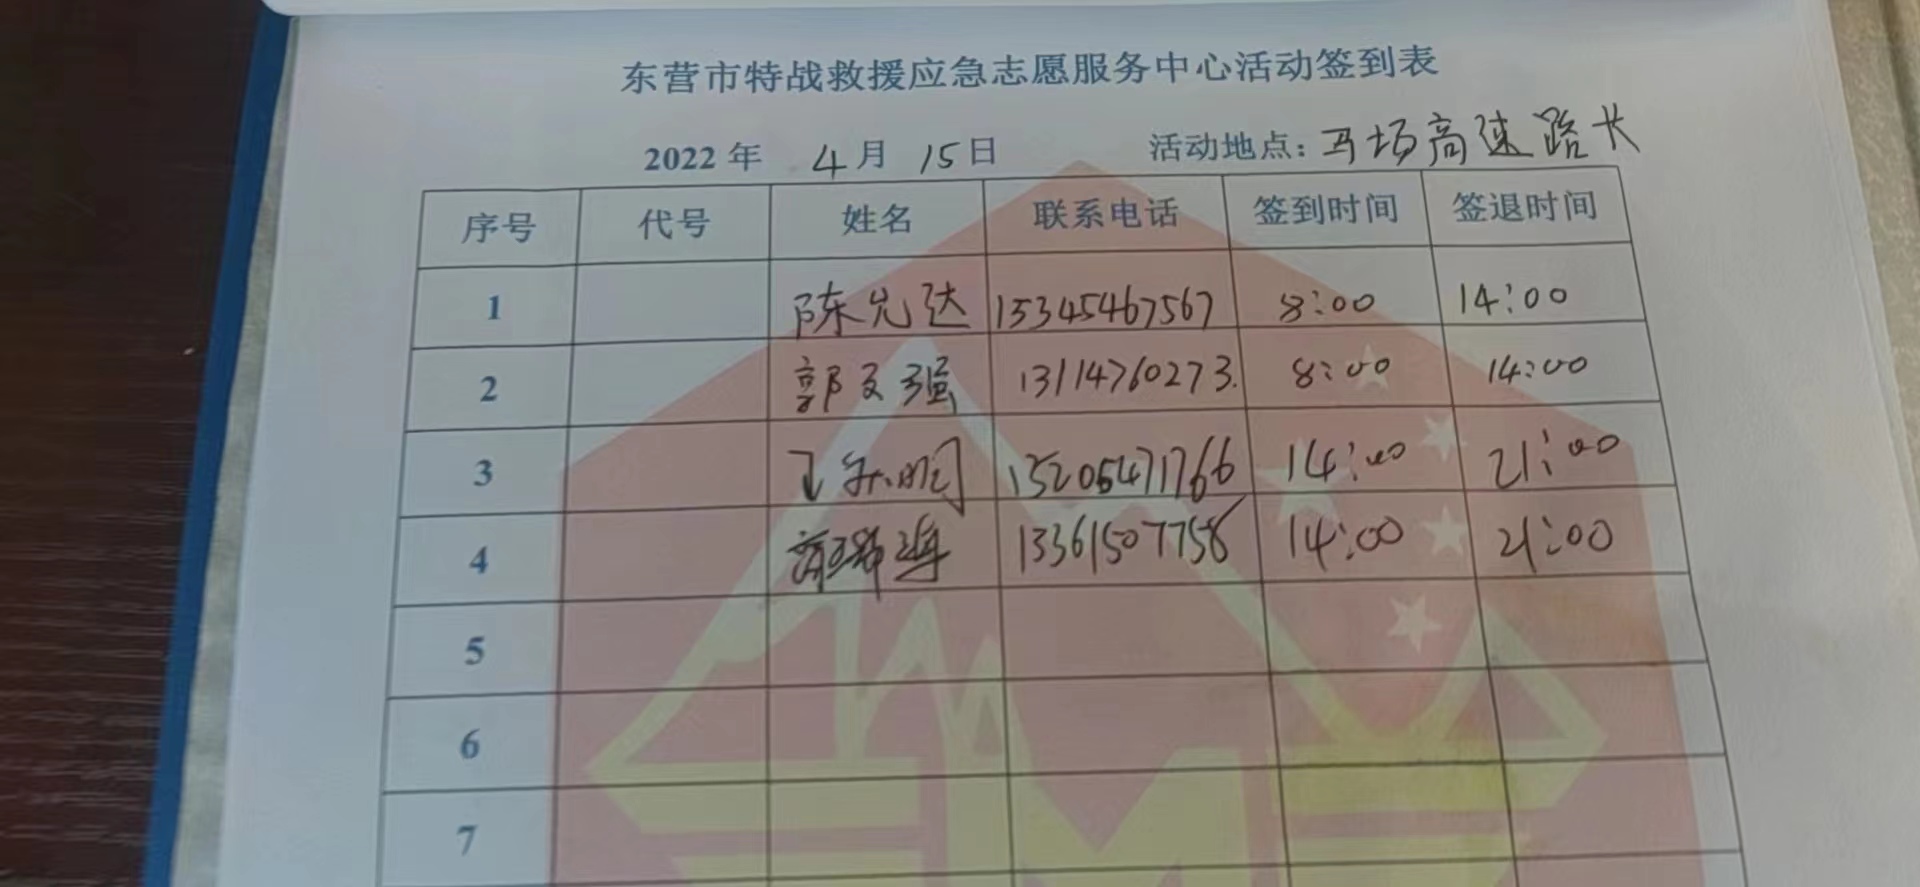 东营市特战救援应急志愿服务中心活动签到表
2022 年 4 月 15 日 活动地点：马场高速路长
序号 代号 姓名 联系电话 签到时间 签退时间
1 陈先达 15345467567 8:00 14:00
2 郭文强 13114760273. 8:00 14:00
3 15205471766 14:00 21:00
4 13361507758 14:00 21:00
5
6
7